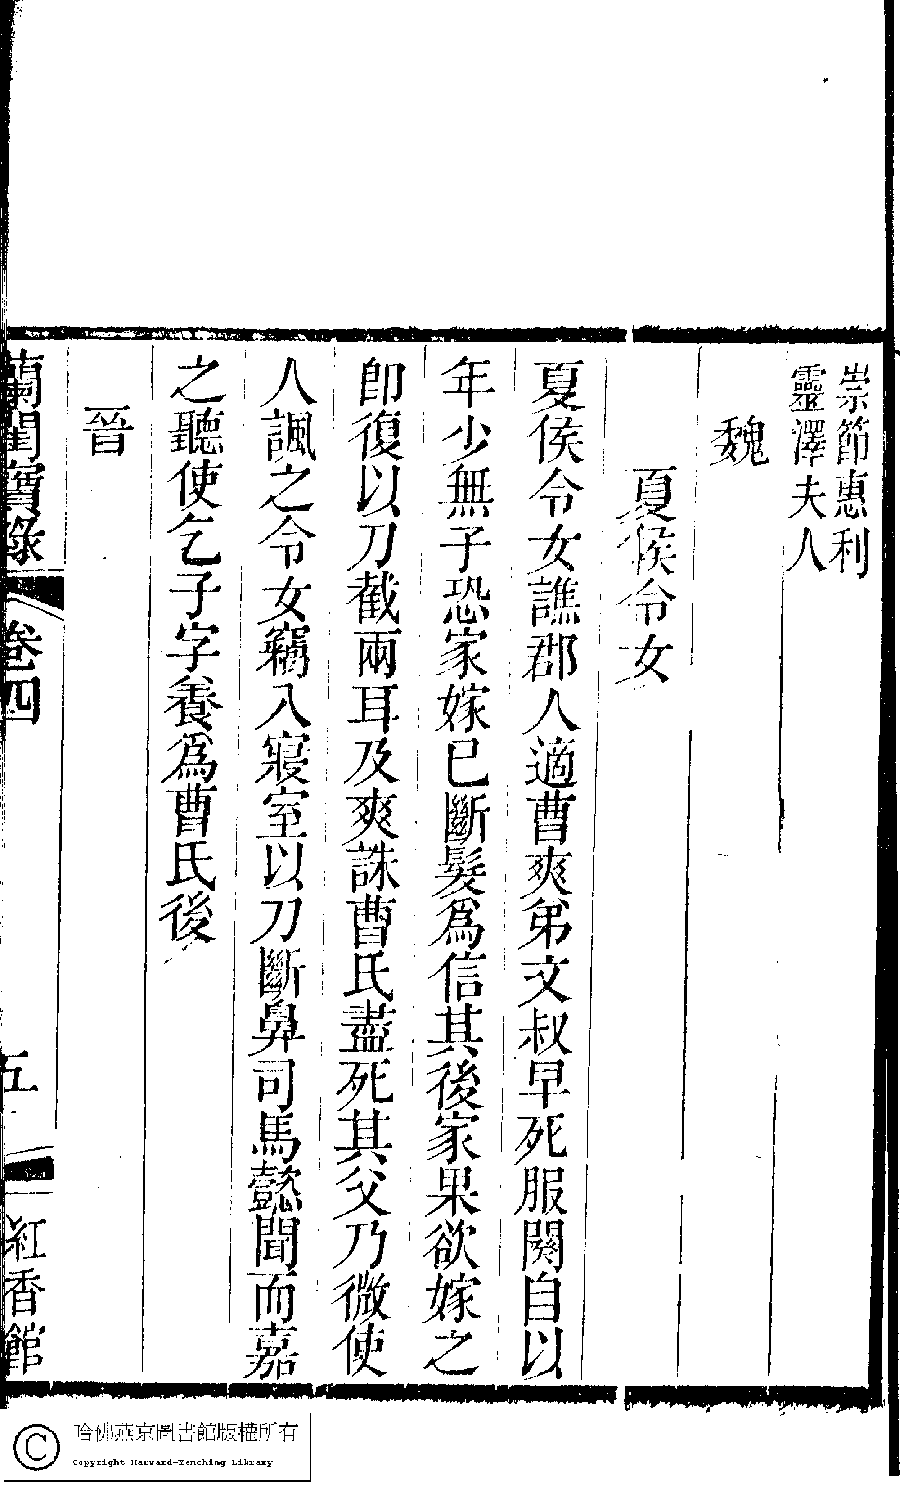 崇節惠利
靈澤夫人
魏
夏侯令女
夏侯令女譙郡人適曹爽弟文叔早死服闋自以
年少無子恐家嫁已斷髮爲信其後家果欲嫁之
卽復以刀截兩耳及爽誅曹氏盡死其父乃微使
人諷之令女竊入寢室以刀斷鼻司馬懿聞而嘉
之聽使乞子字養爲曹氏後
晉
蘭閨寶錄
卷四
五
紅香館
哈佛燕京圖書館版權所有
Copyright Harvard-Yenching Library